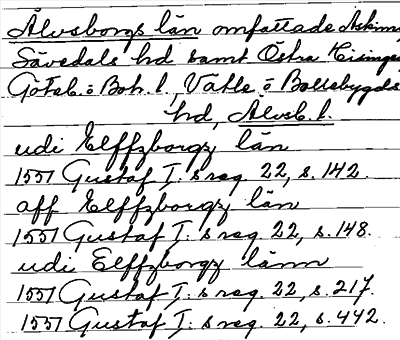 Älvsborgs län omfattade Askims
Sävedals hd samt Östra Hisingen
Göteb. o Boh. l, Vätle o Bollebygds
hd, Älvsb. l.
udi Elffzborgz län
1551 Gustaf I:s reg. 22, s. 142.
aff Elffzborgz län
1551 Gustaf I:s reg. 22, s. 148.
udi Elffzborgz länn
1551 Gustaf I:s reg. 22, s. 217.
1551 Gustaf I:s reg. 22, s. 442.